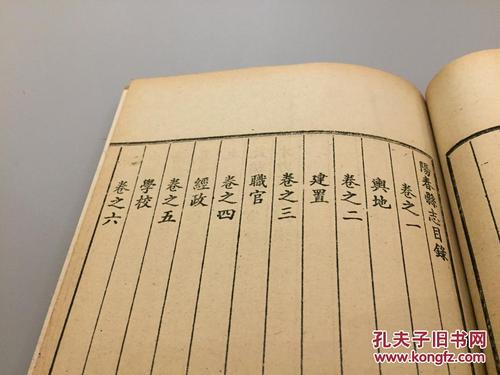 陽春縣志目錄
卷之一
輿地
卷之二
建置
卷之三
職官
卷之四
經政
卷之五
學校
卷之六
孔夫子旧书网
www.kongfz.com